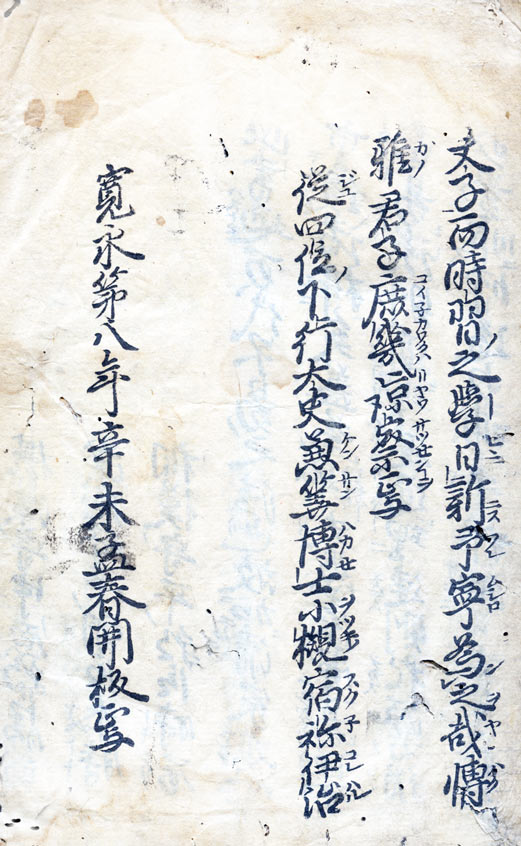 夫子而時習之學日新予寧為之哉博
雅君子庶幾諒察焉
從四位下行大史兼筭博士小槻宿祢伊治
寛永第八年辛未孟春開板焉